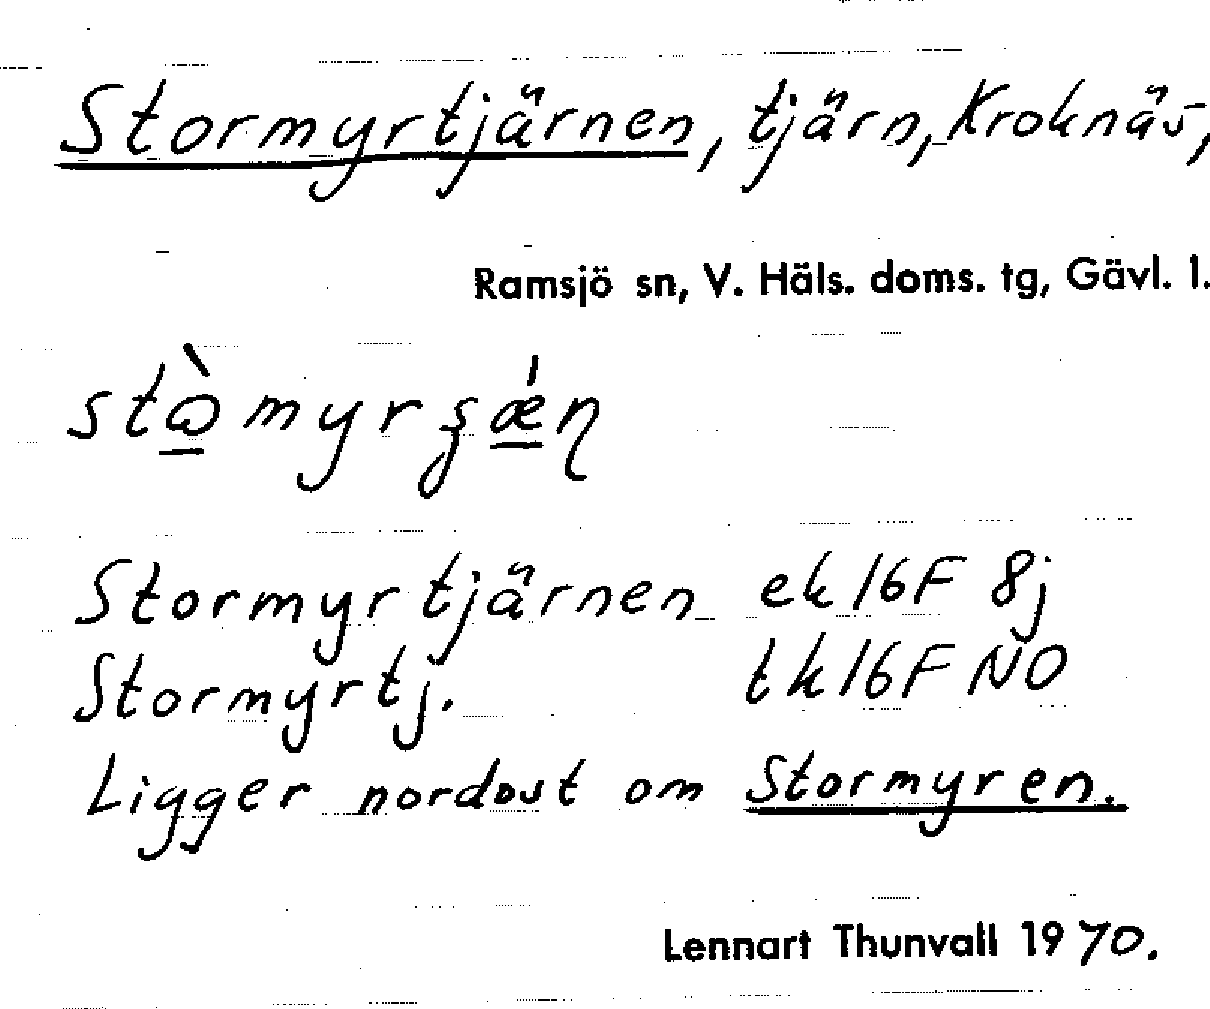 Stormyrtjärnen, tjärn, Kroknäs,
Ramsjö sn, V. Häls. doms. tg, Gävl. l.
Stormyrtjärnen ek 16F 8j
Stormyrtj. tk 16F NO
Ligger nordost om Stormyren.
Lennart Thunvall 1970.